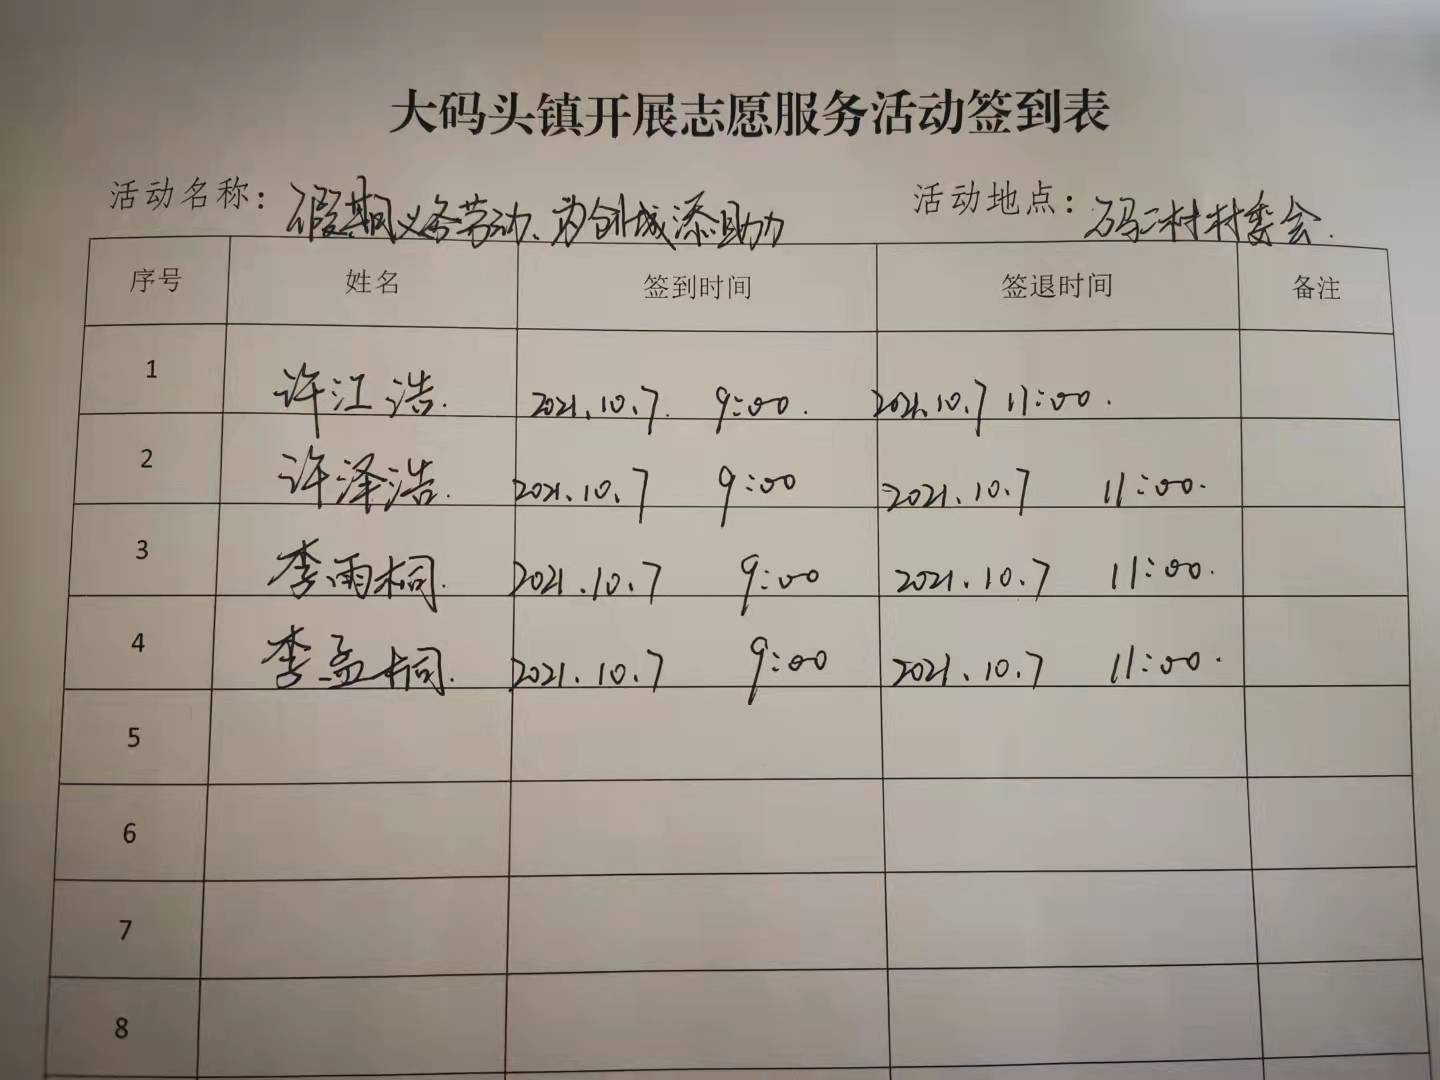 大码头镇开展志愿服务活动签到表
活动名称：假期义务劳动、为创城添助力 活动地点：码二村村委会.
序号 姓名 签到时间 签退时间 备注
1 许江浩. 2021.10.7. 9:00. 2021.10.7 11:00.
2 许泽浩. 2021.10.7 9:00 2021.10.7 11:00.
3 李雨桐. 2021.10.7 9:00 2021.10.7 11:00.
4 李孟桐. 2021.10.7 9:00 2021.10.7 11:00.
5
6
7
8